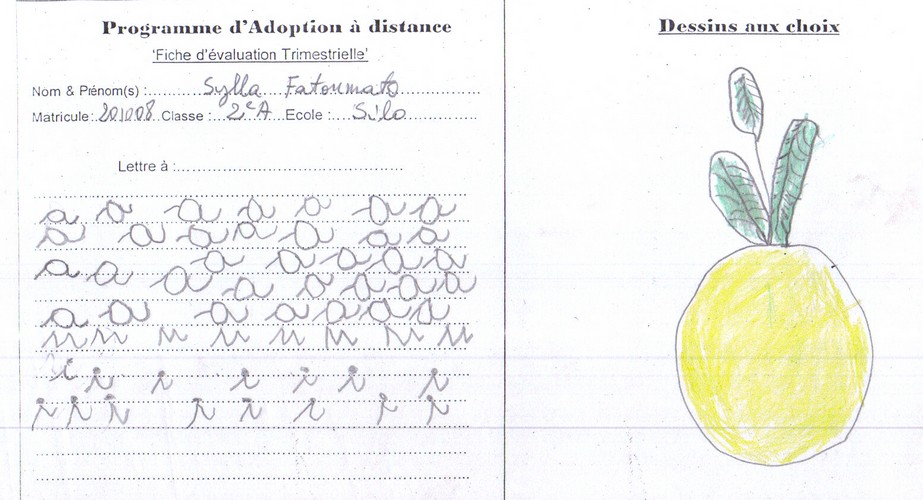 Programme d'Adoption à distance
'Fiche d'évaluation Trimestrielle'
Nom & Prénom(s) :....Sylla Fatoumata
Matricule:.201008..Classe :...2eA...Ecole :....Silo
Lettre à :
a a a a a a a
a a a a a a a
a a a a a a a
a a a a a
a a a a a a a
m m m m m m m m
i i i i i i i i
i i i i i i i i
Dessins aux choix